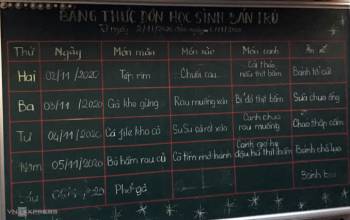 BẢNG THỰC ĐƠN HỌC SINH BÁN TRÚ
Từ ngày 2/11/2020 đến ngày 6/11/2020
Thứ Ngày Món mặn Món xào Món canh Ăn xế
Hai 02/11/2020 Tép rim Chuối cau Cải thảo nấu thịt bằm Bánh tổ
Ba 03/11/2020 Gà kho gừng Rau muống xào Bí đỏ thịt bằm Sữa chua ống
Tư 04/11/2020 Cá file kho cà Su Su cà rốt xào Canh chua rau muống Cháo thập cẩm
Năm 05/11/2020 Bò hầm rau củ Cà tím mỡ hành Canh giá hẹ đậu hũ thịt bằm Bánh chả lụa
Sáu 06/11/2020 Phở gà Bánh
VNEXPRESS